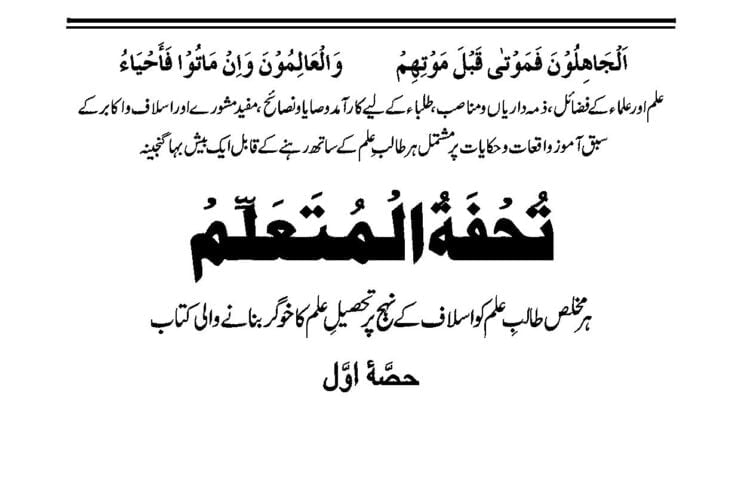 اَلْجَاهِلُوْنَ فَمَوْتٰی قَبْلَ مَوْتِهِمْ وَالْعَالِمُوْنَ وَاِنْ مَاتُوْا فَأَحْيَاءُ
علم اور علماء کے فضائل، ذمہ داریاں و مناصب، طلباء کے لیے کارآمد وصایا و نصائح، مفید مشورے اور اسلاف و اکابر کے
سبق آموز واقعات و حکایات پر مشتمل ہر طالبِ علم کے ساتھ رہنے کے قابل ایک بیش بہا گنجینہ
تُحْفَةُ الْمُتَعَلِّمْ
ہر مخلص طالبِ علم کو اسلاف کے نہج پر تحصیلِ علم کا خوگر بنانے والی کتاب
حصّۂ اوّل